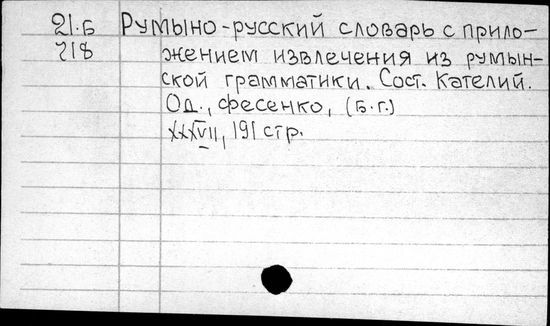 21.Б Румыно-русский словарь с прило-
718 жением извлечения из румын-
ской грамматики. Сост. Кателий.
Од., Фесенко, (б.г.)
XXXVII, 191 стр.